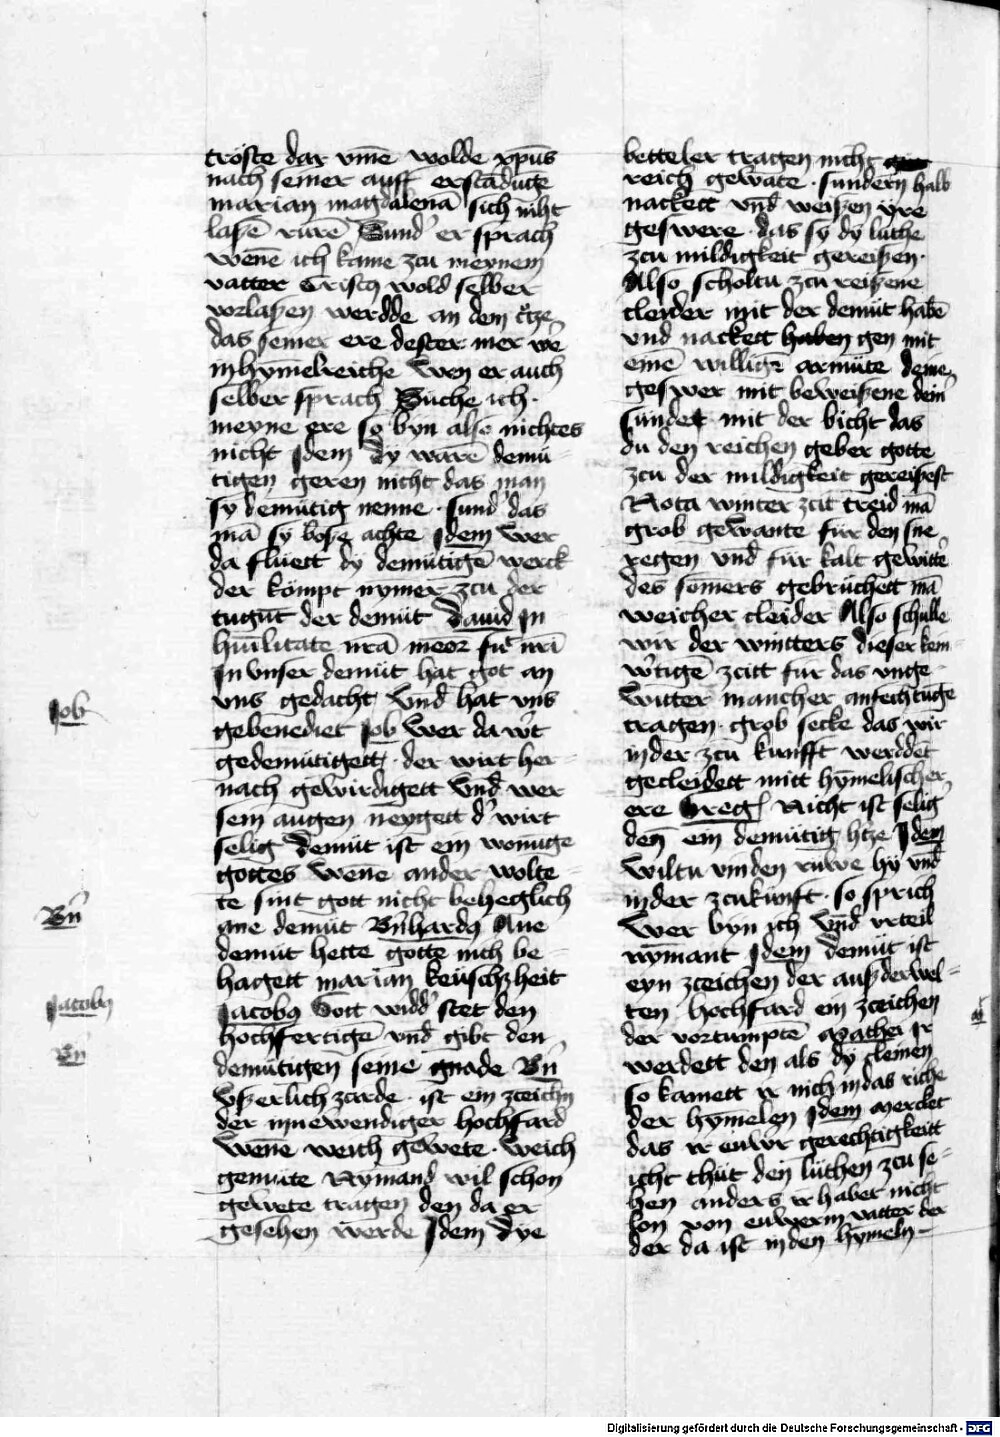 tröste dar vm̄e wolde xp̄us
nach seiner auff erstādūge
marian magdalenā sich niht
laßē rurē Sund' er sprach
wēne ich kame zcu meynem
vatter Cristꝯ wold selber
vorlaßen werdde an dem
das seiner ere dester mer
in hȳmelreiche Wen er auch
selber sprach Suche ich
meyne ere so byn alse nichtes
nicht Jdem Dy warē demū-
tigen geren nicht das man
sy demūtig nenne · sund' das
mā sy boße achte Jdem Wer
da flüett dy demütigē werck
der kömpt nymer zcu der
tugūt der demüt Dauid Jn
hūilitate nr̄ā meor fūt nr̄i
Jn vnser demüt hat got an
vns gedacht Vnd hat vns
gebenediet Job Wer da w't
gedemütigett · der wirt her-
nach gewirdigett Vnd wer
sein augen neygett d' wirt
selig Demüt ist ein wonūge
gottes Wēne ander wolte-
te sint gott nicht beheglich
ane demüt Bn̄hardꝯ Ane
demüt hette gotte nich be-
hagett marian keüschzheit
Jacobꝯ Gott widd' stet den
hochfertigē vnd gibt den
demütigen seine gnade Bn̄
Vßerlich zcirde · ist ein zceichn̄
der jnnewendiger hochfard
Wēne weich gewete · weich
gemüte Nymand wil schon
gewete tragen den da er
gesehen werde Jdem Dye
Job
Bn̄
Jacobꝯ
Bn̄
betteler tragen nicht
reich gewate · sundern halb
nackett vnd weißen yre
geswere · das sy dy luthe
zcu mildigkeit gereißen ·
Also scholtu zcu reißene
cleider mit der demüt habē
vnd nackett haben gen mit
einē willigē armüte deine
geswer mit beweißene dein'
sunder mit der bicht das
du den reichen geber gotte
zcu der mildigkeit gereißest
Nota winter zcit treid mā
grob gewante für den sne
regen vnd für kalt gewitt'
des somers gebrüchett mā
weicher cleider Also schulle
wir der wintters dieser kein-
w'tigē zcitt für das vnge-
witter mancher anfechtūge
tragen · grob secke das wir
in der zcu kunfft werddet
gecleidett mitt hȳmelischer
ere Greg Nicht ist selig'
den ein demütig h'tze Jdem
Wiltu vinden ruwe hy vnd
in der zcukünft · so sprich
Wer byn ich Vnd vrteil
nymant Jdem demüt ist
eyn zceichen der außderwel-
ten hochfard ein zceichen
der vortumptē Mathei Jr
werdett den als dy cleinen
so kamett ir nich in das riche
der hȳmelen Jdem Mercket
das ir euwr gerechtigkeitt
icht thüt den lüthen zcu se-
hen anders ir habet nicht
lon von euwerm vatter der
der da ist in den hȳmeln
Digitalisierung gefördert durch die Deutsche Forschungsgemeinschaft - DFG